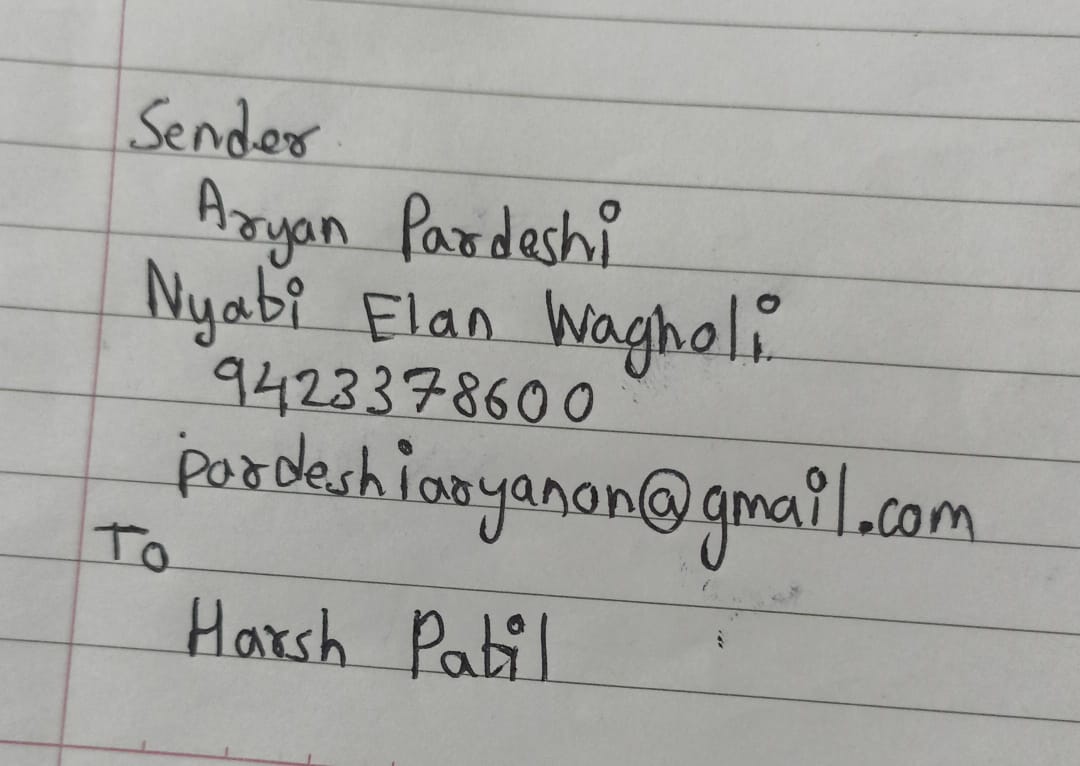 Sender
Aryan Pardeshi
Nyabi Elan Wagholi.
9423378600
pardeshiaryanon@gmail.com
To
Harsh Patil